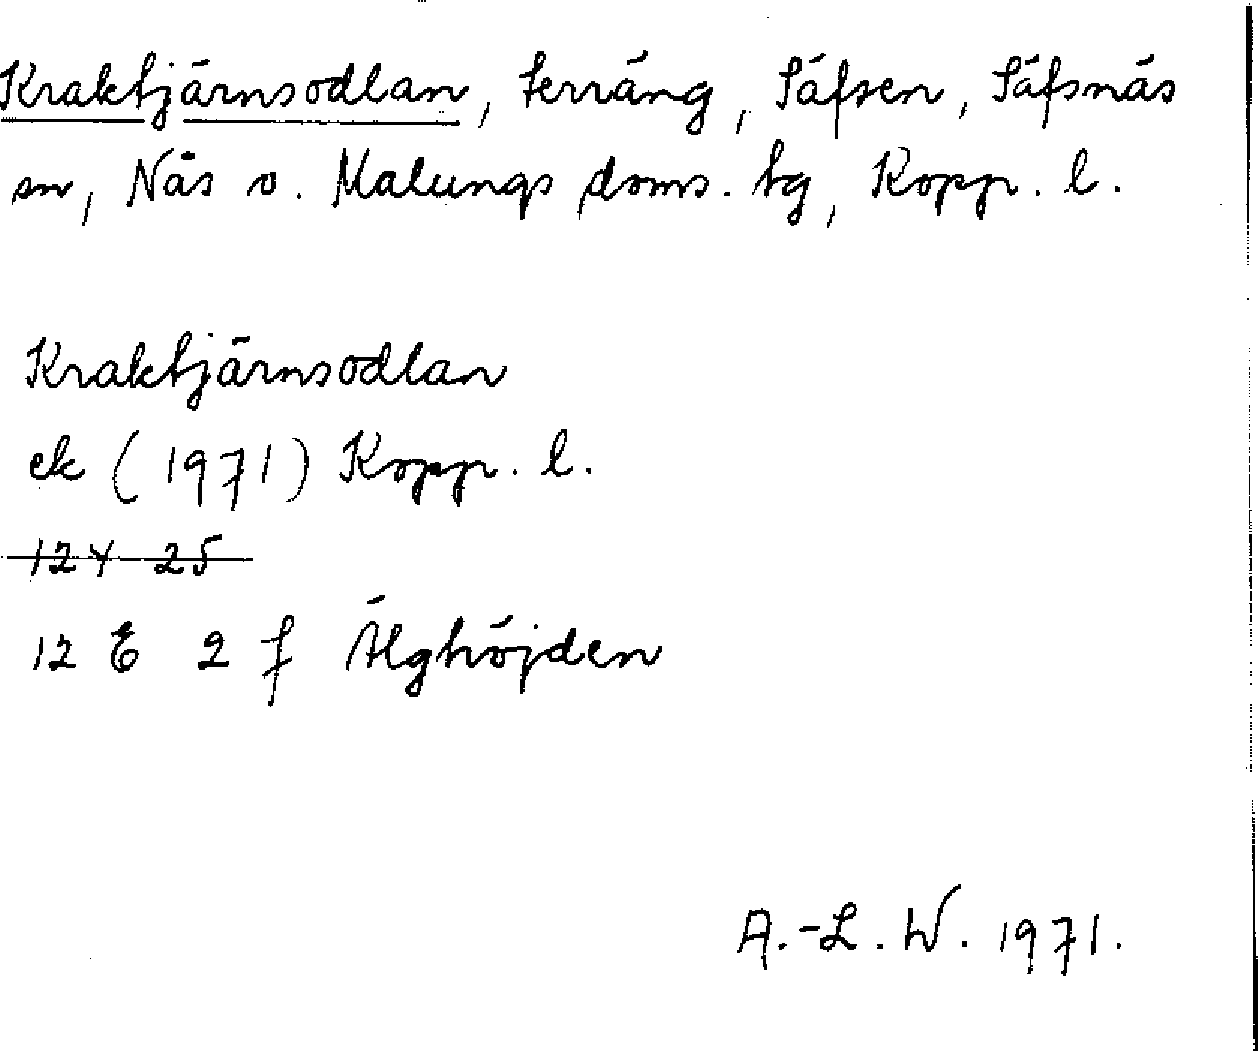 Kraktjärnsodlan, terräng, Säfsen, Säfsnäs
sn, Nås o. Malungs doms. tg, Kopp. l.
Kraktjärnsodlan
ek (1971) Kopp. l.
124 25
12 E 2 f Älghöjden
A.-L. W. 1971.